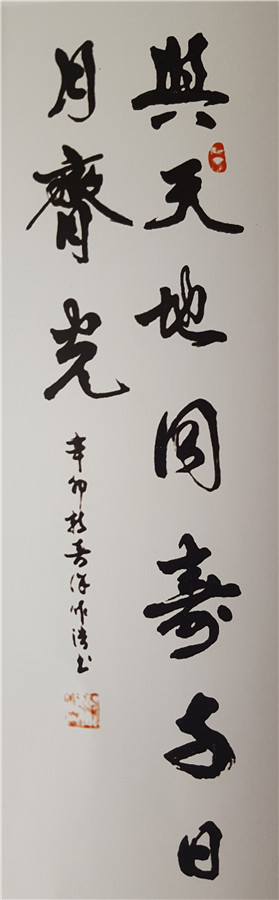 與天地同壽与日
月齊光
辛卯